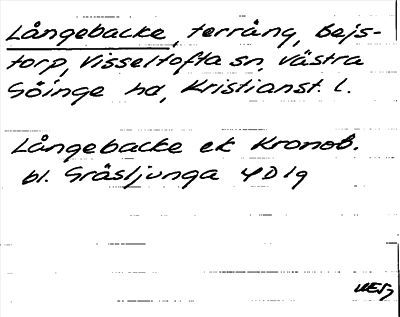 Långebacke, terräng, Bejs-
torp, Visseltofta sn, Västra
Göinge hd, Kristianst. l.
Långebacke ek Kronob.
bl. Gräsljunga 4D1g